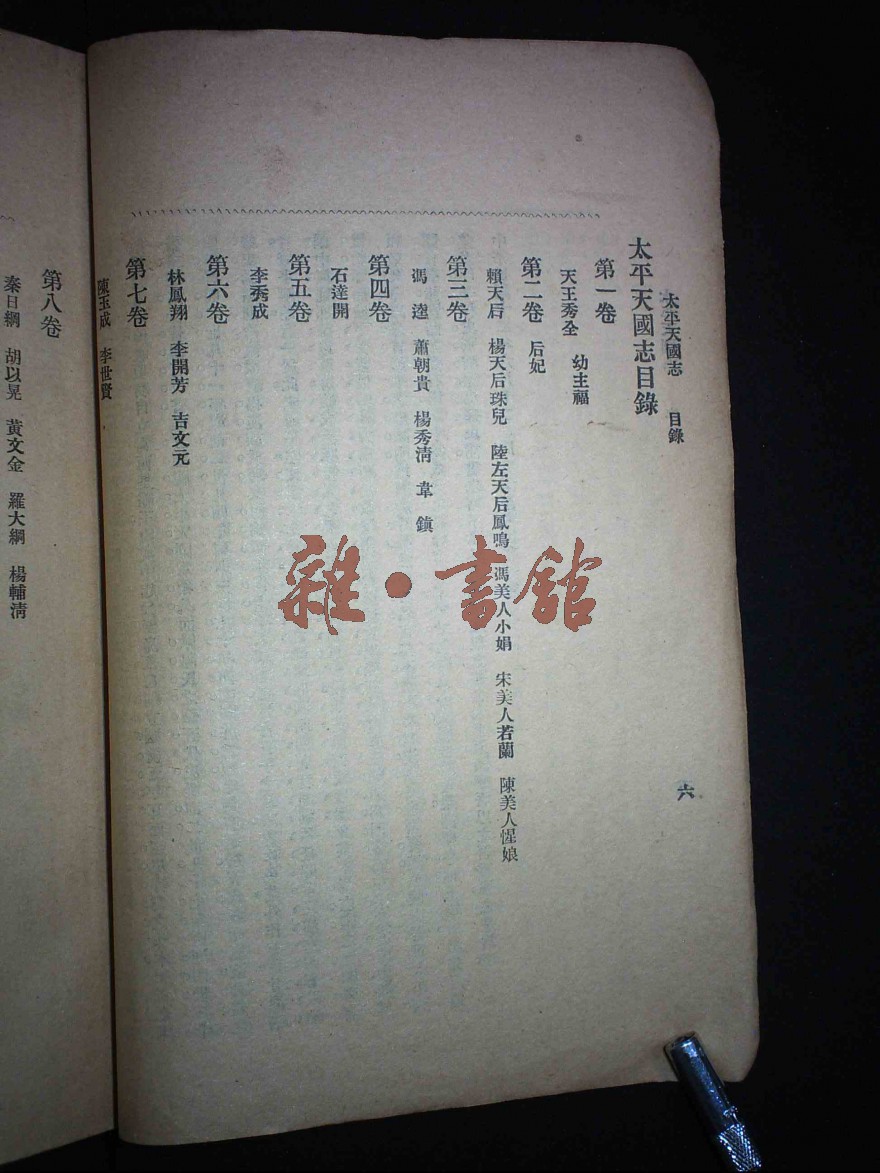 太平天國志　目錄　六
太平天國志目錄
第一卷
天王秀全　幼主福
第二卷　后妃
賴天后　楊天后珠兒　陸左天后鳳鳴　馮美人小娟　宋美人若蘭　陳美人惺娘
第三卷
馮逵　蕭朝貴　楊秀清　韋鎮
第四卷
石達開
第五卷
李秀成
第六卷
林鳳翔　李開芳　吉文元
第七卷
陳玉成　李世賢
第八卷
秦日綱　胡以晃　黃文金　羅大綱　楊輔清
雜·書館